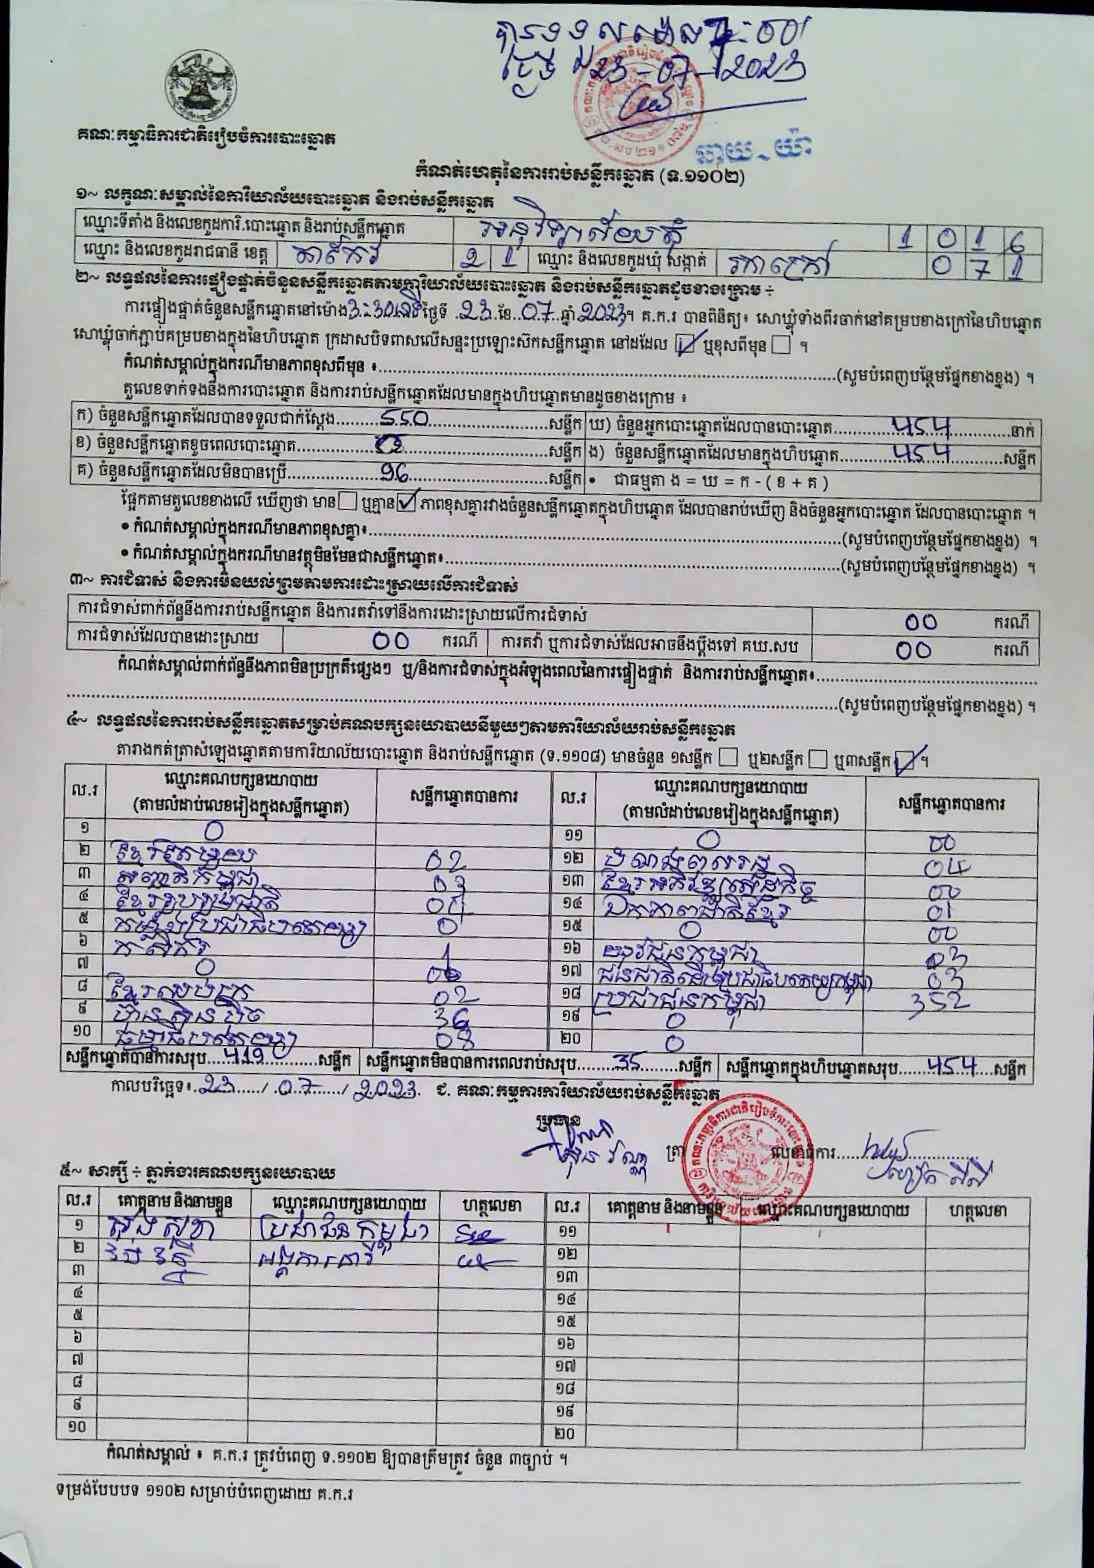 បានទទួលម៉ោង
ថ្ងៃ 23-07-2023
ឆាយ-យ៉ា
គណៈកម្មាធិការជាតិរៀបចំការបោះឆ្នោត
កំណត់ហេតុនៃការរាប់សន្លឹកឆ្នោត (ទ.១១០២)
១~ លក្ខណៈសម្គាល់នៃការិយាល័យបោះឆ្នោត និងរាប់សន្លឹកឆ្នោត
ឈ្មោះទីតាំង និងលេខកូដការិ.បោះឆ្នោត និងរាប់សន្លឹកឆ្នោត អនុវិទ្យាល័យ 1 0 1 6
ឈ្មោះ និងលេខកូដរាជធានី ខេត្ត តាកែវ 2 1 ឈ្មោះ និងលេខកូដឃុំ សង្កាត់ រកាក្រៅ 0 7 1
២~ លទ្ធផលនៃការផ្ទៀងផ្ទាត់ចំនួនសន្លឹកឆ្នោតតាមការិយាល័យបោះឆ្នោត និងរាប់សន្លឹកឆ្នោតដូចខាងក្រោម ÷
ការផ្ទៀងផ្ទាត់ចំនួនសន្លឹកឆ្នោតនៅម៉ោង 3:30 ថ្ងៃទី 23 ខែ 07 ឆ្នាំ 2023 ។ គ.ក.រ បានពិនិត្យ៖ សោឃ្លុំទាំងពីរចាក់នៅគម្របខាងក្រៅនៃហិបឆ្នោត
សោឃ្លុំចាក់ភ្ជាប់គម្របខាងក្នុងនៃហិបឆ្នោត ក្រដាសបិទពាសលើសន្ទះប្រឡោះស៊កសន្លឹកឆ្នោត នៅដដែល ☑ ឬខុសពីមុន ☐ ។
កំណត់សម្គាល់ក្នុងករណីមានភាពខុសពីមុន ៖ (សូមបំពេញបន្ថែមផ្នែកខាងខ្នង) ។
តួលេខទាក់ទងនឹងការបោះឆ្នោត និងការរាប់សន្លឹកឆ្នោតដែលមានក្នុងហិបឆ្នោតមានដូចខាងក្រោម ៖
ក) ចំនួនសន្លឹកឆ្នោតដែលបានទទួលជាក់ស្តែង 550 សន្លឹក ឃ) ចំនួនអ្នកបោះឆ្នោតដែលបានបោះឆ្នោត 454 នាក់
ខ) ចំនួនសន្លឹកឆ្នោតខូចពេលបោះឆ្នោត សន្លឹក ង) ចំនួនសន្លឹកឆ្នោតដែលមានក្នុងហិបឆ្នោត 454 សន្លឹក
គ) ចំនួនសន្លឹកឆ្នោតដែលមិនបានប្រើ 96 សន្លឹក • ជាធម្មតា ង = ឃ = ក - ( ខ + គ )
ផ្អែកតាមតួលេខខាងលើ ឃើញថា មាន ☐ ឬគ្មាន ☑ ភាពខុសគ្នារវាងចំនួនសន្លឹកឆ្នោតក្នុងហិបឆ្នោត ដែលបានរាប់ឃើញ និងចំនួនអ្នកបោះឆ្នោត ដែលបានបោះឆ្នោត ។
• កំណត់សម្គាល់ក្នុងករណីមានភាពខុសគ្នា៖ (សូមបំពេញបន្ថែមផ្នែកខាងខ្នង) ។
• កំណត់សម្គាល់ក្នុងករណីមានវត្ថុមិនមែនជាសន្លឹកឆ្នោត៖ (សូមបំពេញបន្ថែមផ្នែកខាងខ្នង) ។
៣~ ការជំទាស់ និងការមិនយល់ព្រមតាមការដោះស្រាយលើការជំទាស់
ការជំទាស់ពាក់ព័ន្ធនឹងការរាប់សន្លឹកឆ្នោត និងការតវ៉ាទៅនឹងការដោះស្រាយលើការជំទាស់ 00 ករណី
ការជំទាស់ដែលបានដោះស្រាយ 00 ករណី ការតវ៉ា ឬការជំទាស់ដែលអាចនឹងប្តឹងទៅ គឃ.សប 00 ករណី
កំណត់សម្គាល់ពាក់ព័ន្ធនឹងភាពមិនប្រក្រតីផ្សេងៗ ឬ/និងការជំទាស់ក្នុងអំឡុងពេលនៃការផ្ទៀងផ្ទាត់ និងការរាប់សន្លឹកឆ្នោត៖
(សូមបំពេញបន្ថែមផ្នែកខាងខ្នង) ។
៤~ លទ្ធផលនៃការរាប់សន្លឹកឆ្នោតសម្រាប់គណបក្សនយោបាយនីមួយៗតាមការិយាល័យរាប់សន្លឹកឆ្នោត
តារាងកត់ត្រាសំឡេងឆ្នោតតាមការិយាល័យបោះឆ្នោត និងរាប់សន្លឹកឆ្នោត (ទ.១១០៨) មានចំនួន ១សន្លឹក ☐ ឬ២សន្លឹក ☐ ឬ៣សន្លឹក ☑ ។
ល.រ ឈ្មោះគណបក្សនយោបាយ (តាមលំដាប់លេខរៀងក្នុងសន្លឹកឆ្នោត) សន្លឹកឆ្នោតបានការ ល.រ ឈ្មោះគណបក្សនយោបាយ (តាមលំដាប់លេខរៀងក្នុងសន្លឹកឆ្នោត) សន្លឹកឆ្នោតបានការ
១ 0 ១១ 0 00
២ ខ្មែរតែមួយ 02 ១២ 04
៣ សញ្ជាតិកម្ពុជា 03 ១៣ ខ្មែរអភិវឌ្ឍន៍សេដ្ឋកិច្ច 00
៤ ខ្មែររួបរួមជាតិ ១៤ ឯកភាពជាតិខ្មែរ 01
៥ កម្លាំងប្រជាធិបតេយ្យ 0 ១៥ 0 00
៦ កសិករ 1 ១៦ យុវជនកម្ពុជា 03
៧ 0 ១៧ ជនជាតិដើមប្រជាធិបតេយ្យកម្ពុជា 03
៨ ខ្មែរឈប់ក្រ 02 ១៨ ប្រជាជនកម្ពុជា 352
៩ ហ៊្វុនស៊ិនប៉ិច 36 ១៩ 0
១០ ធម្មាធិបតេយ្យ 08 ២០ 0
សន្លឹកឆ្នោតបានការសរុប 419 សន្លឹក សន្លឹកឆ្នោតមិនបានការពេលរាប់សរុប 35 សន្លឹក សន្លឹកឆ្នោតក្នុងហិបឆ្នោតសរុប 454 សន្លឹក
កាលបរិច្ឆេទ៖ 23 / 07 / 2023 ជ. គណៈកម្មការការិយាល័យរាប់សន្លឹកឆ្នោត
ប្រធាន
ត្រា លេខាធិការ
៥~ សាក្សី ÷ ភ្នាក់ងារគណបក្សនយោបាយ
ល.រ គោត្តនាម និងនាមខ្លួន ឈ្មោះគណបក្សនយោបាយ ហត្ថលេខា ល.រ គោត្តនាម និងនាមខ្លួន ឈ្មោះគណបក្សនយោបាយ ហត្ថលេខា
១ ប្រជាជនកម្ពុជា ១១
២ អង្គការនារី ១២
៣ ១៣
៤ ១៤
៥ ១៥
៦ ១៦
៧ ១៧
៨ ១៨
៩ ១៩
១០ ២០
កំណត់សម្គាល់ ៖ គ.ក.រ ត្រូវបំពេញ ទ.១១០២ ឱ្យបានត្រឹមត្រូវ ចំនួន ៣ច្បាប់ ។
ទម្រង់បែបបទ ១១០២ សម្រាប់បំពេញដោយ គ.ក.រ